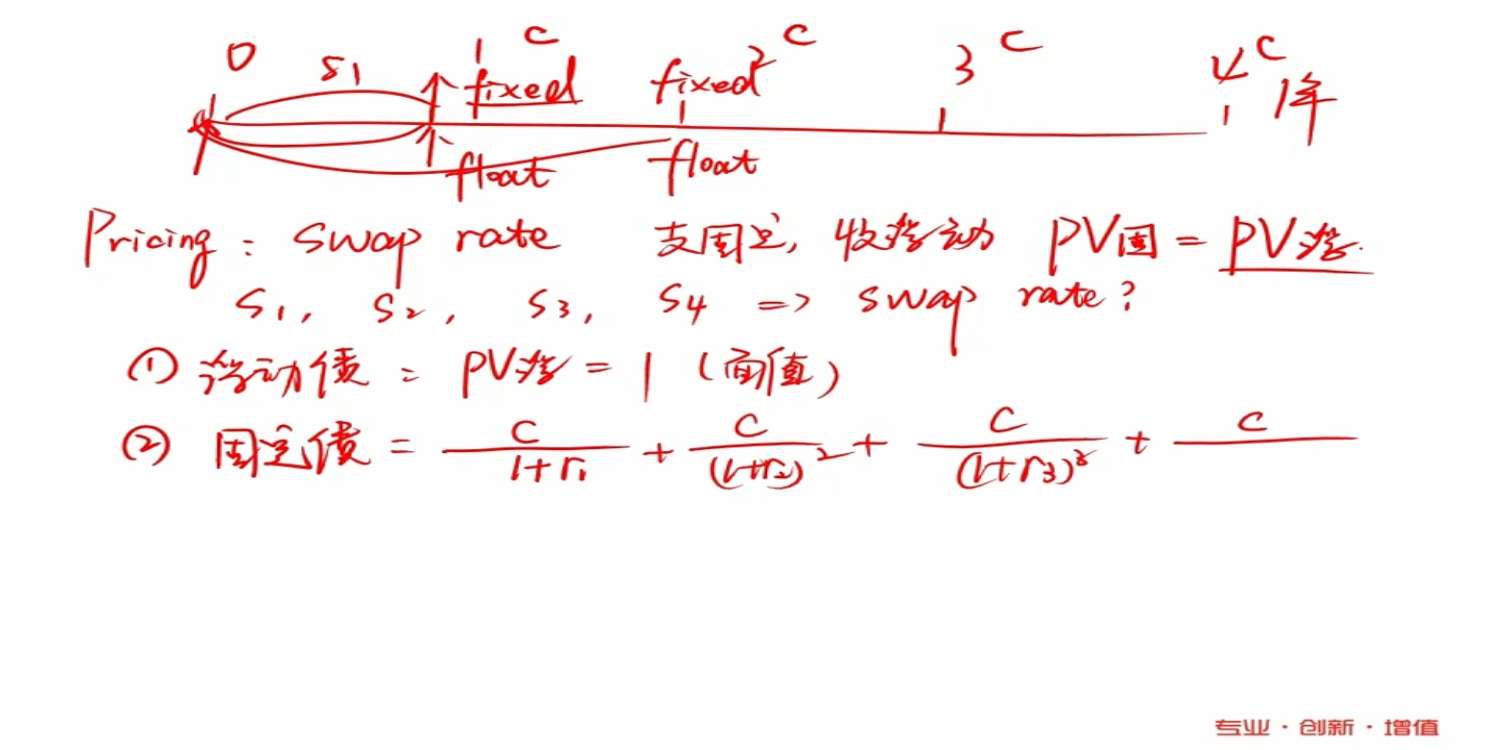 0 S1 1 C 2 C 3 C 4 C
fixed fixed 1年
float float
Pricing: swap rate 支固定, 收浮动 PV固 = PV浮.
S1, S2, S3, S4 => swap rate?
① 浮动债: PV浮 = 1 (面值)
② 固定债 = C/(1+r1) + C/(1+r2)² + C/(1+r3)³ + C/
专业·创新·增值